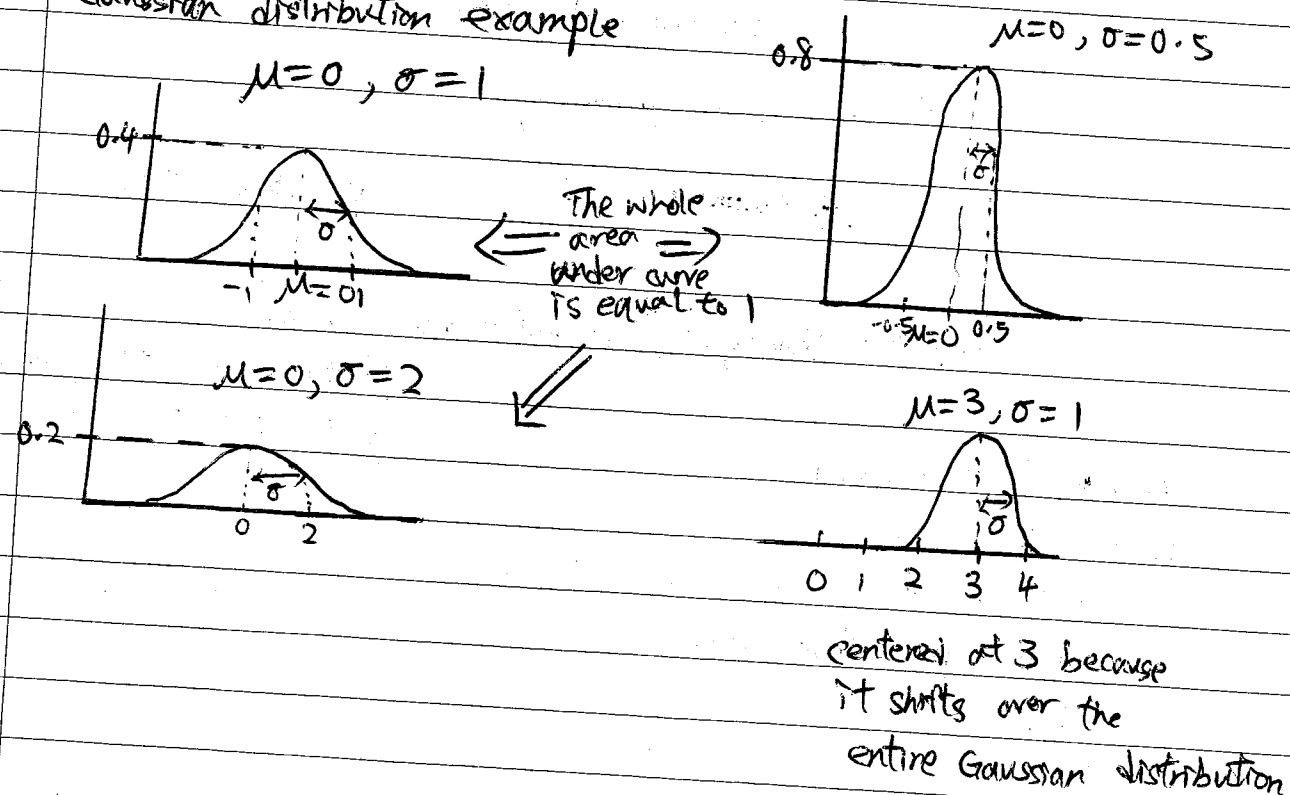 Gaussian distribution example
μ=0, σ=1
0.4
σ
-1 μ=0 1
The whole
area
under curve
is equal to 1
μ=0, σ=0.5
0.8
σ
-0.5 μ=0 0.5
μ=0, σ=2
0.2
σ
0 2
μ=3, σ=1
σ
0 1 2 3 4
centered at 3 because
it shifts over the
entire Gaussian distribution